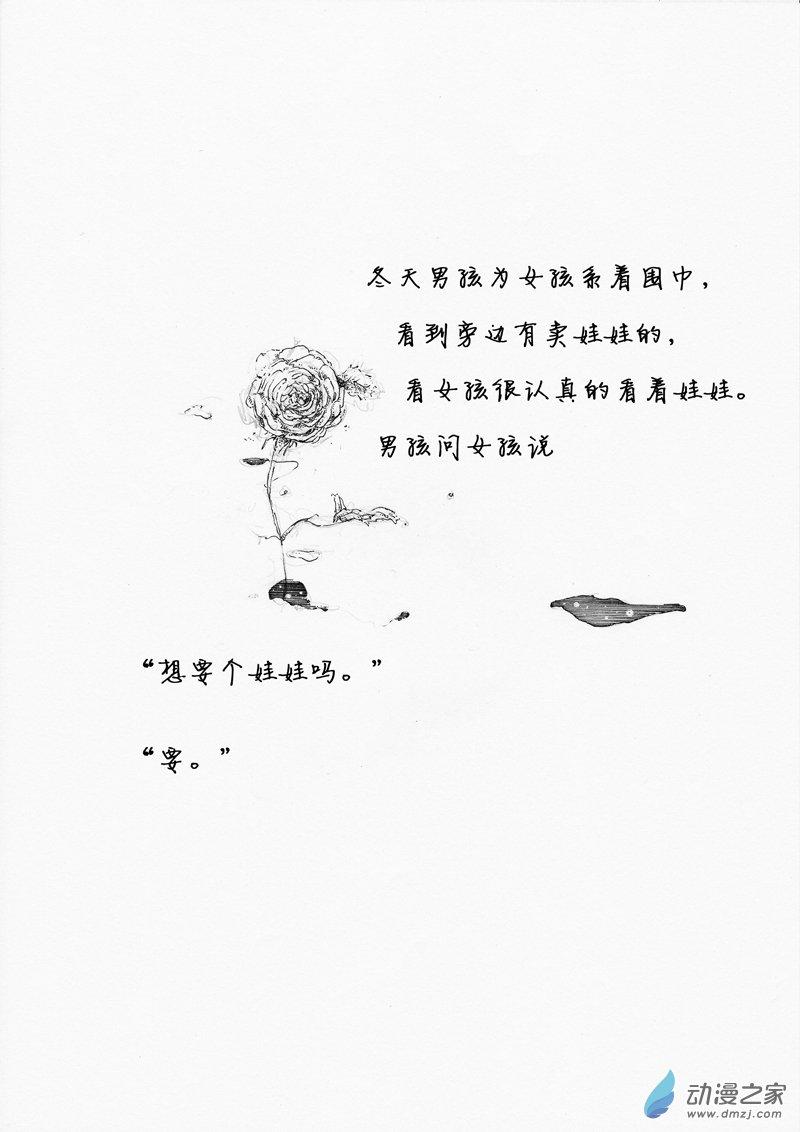 冬天男孩为女孩系着围巾，
看到旁边有卖娃娃的，
看女孩很认真的看着娃娃。
男孩问女孩说
“想要个娃娃吗。”
“要。”
动漫之家
www.dmzj.com